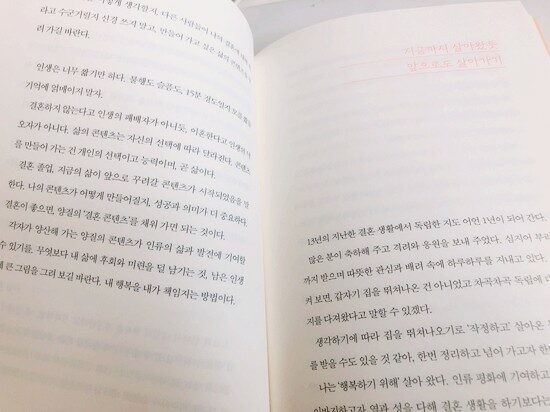 생각할지, 다른 사람들이 나의 결혼에
라고 수군거릴지 신경 쓰지 말고, 만들어 가고 싶은 삶의 콘텐츠
려 가길 바란다.
인생은 너무 짧기만 하다. 불행도 슬픔도, 15분 정도인지 모를
기억에 얽매이지 말자.
결혼하지 않는다고 인생의 패배자가 아니듯, 이혼한다고 인생의
오자가 아니다. 삶의 콘텐츠는 자신의 선택에 따라 달라진다. 콘텐츠
를 만들어 가는 건 개인의 선택이고 능력이며, 곧 삶이다.
결혼 졸업, 지금의 삶이 앞으로 꾸려갈 콘텐츠가 시작되었음을
한다. 나의 콘텐츠가 어떻게 만들어질지, 성공과 의미가 더 중요하다.
결혼이 좋으면, 양질의 '결혼 콘텐츠'를 채워 가면 되는 것이다.
각자가 양산해 가는 양질의 콘텐츠가 인류의 삶과 발전에 기여할
수 있기를, 무엇보다 내 삶에 후회와 미련을 덜 남기는 것, 남은 인생
에 큰 그림을 그려 보길 바란다. 내 행복을 내가 책임지는 방법이다.
지금까지 살아왔듯
앞으로도 살아가기
13년의 지난한 결혼 생활에서 독립한 지도 어언 1년이 되어 간다.
많은 분이 축하해 주고 격려와 응원을 보내 주었다. 심지어 부러
까지 받으며 따뜻한 관심과 배려 속에 하루하루를 지내고 있다.
켜 보면, 갑자기 집을 뛰쳐나온 건 아니었고 차곡차곡 독립에
지를 다져왔다고 말할 수 있겠다.
생각하기에 따라 집을 뛰쳐나오기로 '작정하고' 살아온
를 받을 수도 있을 것 같아, 한번 정리하고 넘어 가고자 한
나는 '행복하기 위해' 살아 왔다. 인류 평화에 기여하고
이바지하고자 열과 성을 다해 결혼 생활을 하기보다는